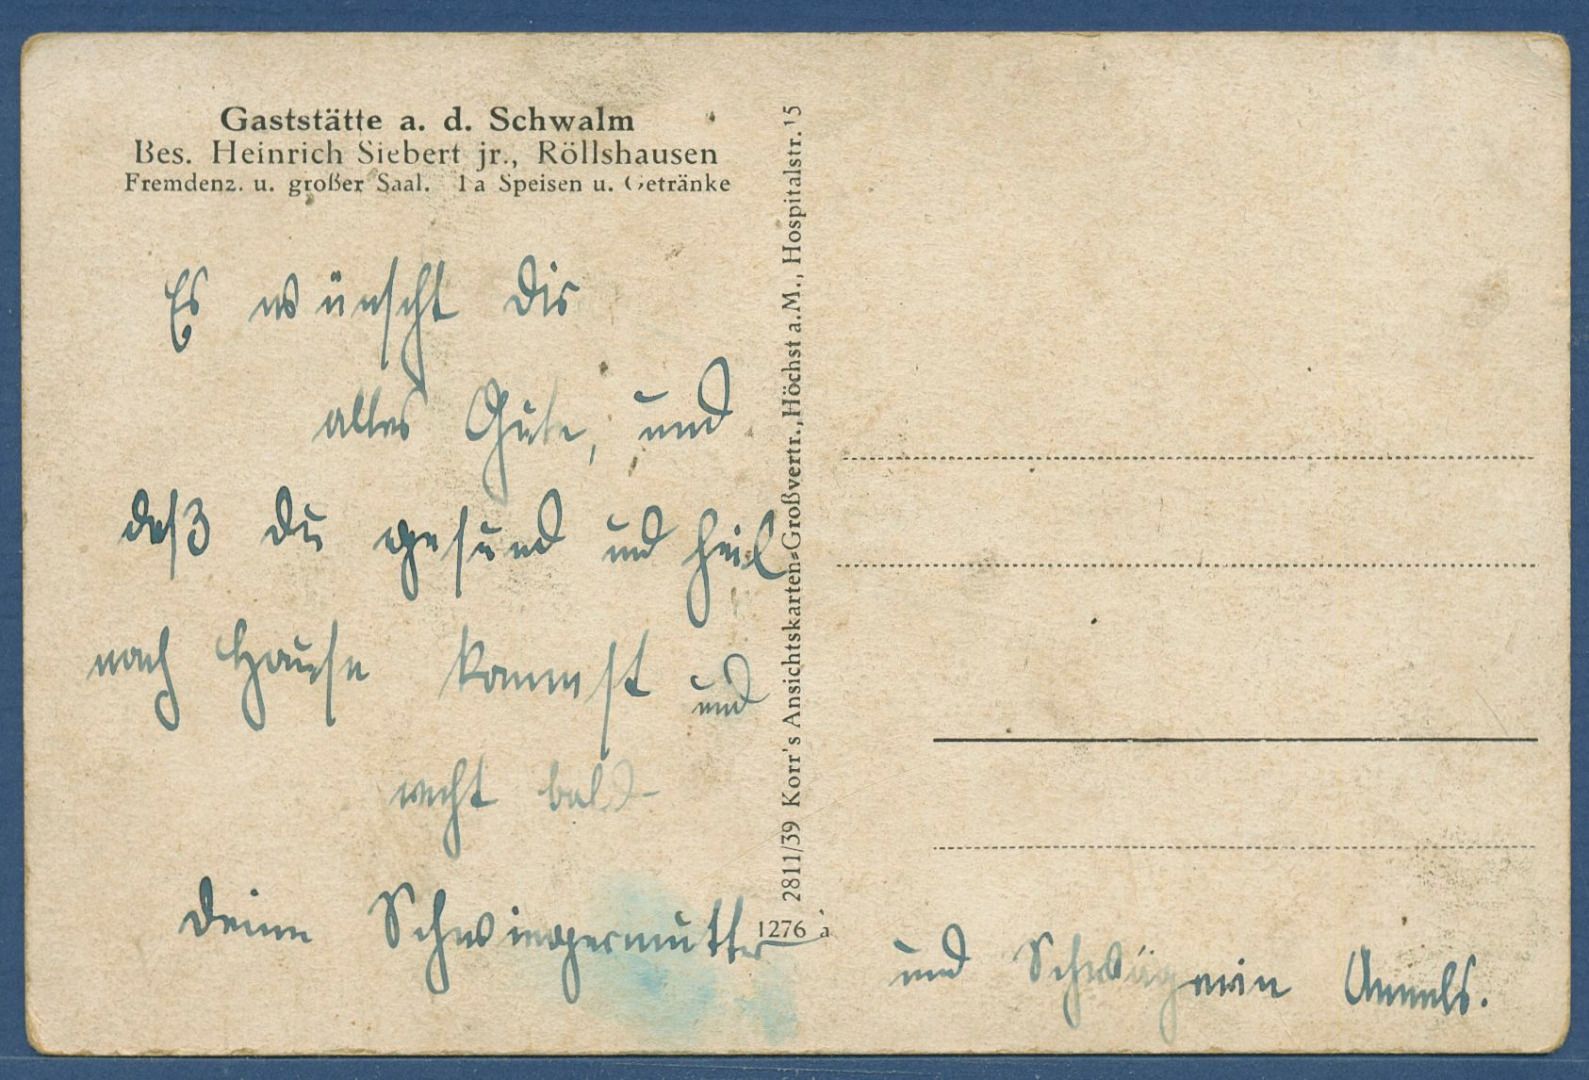 Gaststätte a. d. Schwalm
Bes. Heinrich Siebert jr., Röllshausen
Fremdenz. u. großer Saal. 1a Speisen u. Getränke
Es wünscht Dir
alles Gute, und
daß du gesund und heil
nach Hause kommst und
recht bald
Deine Schwiegermutter
und Schwägerin
2811/39 Korr's Ansichtskarten-Großvertr., Höchst a. M., Hospitalstr. 15
1276 a